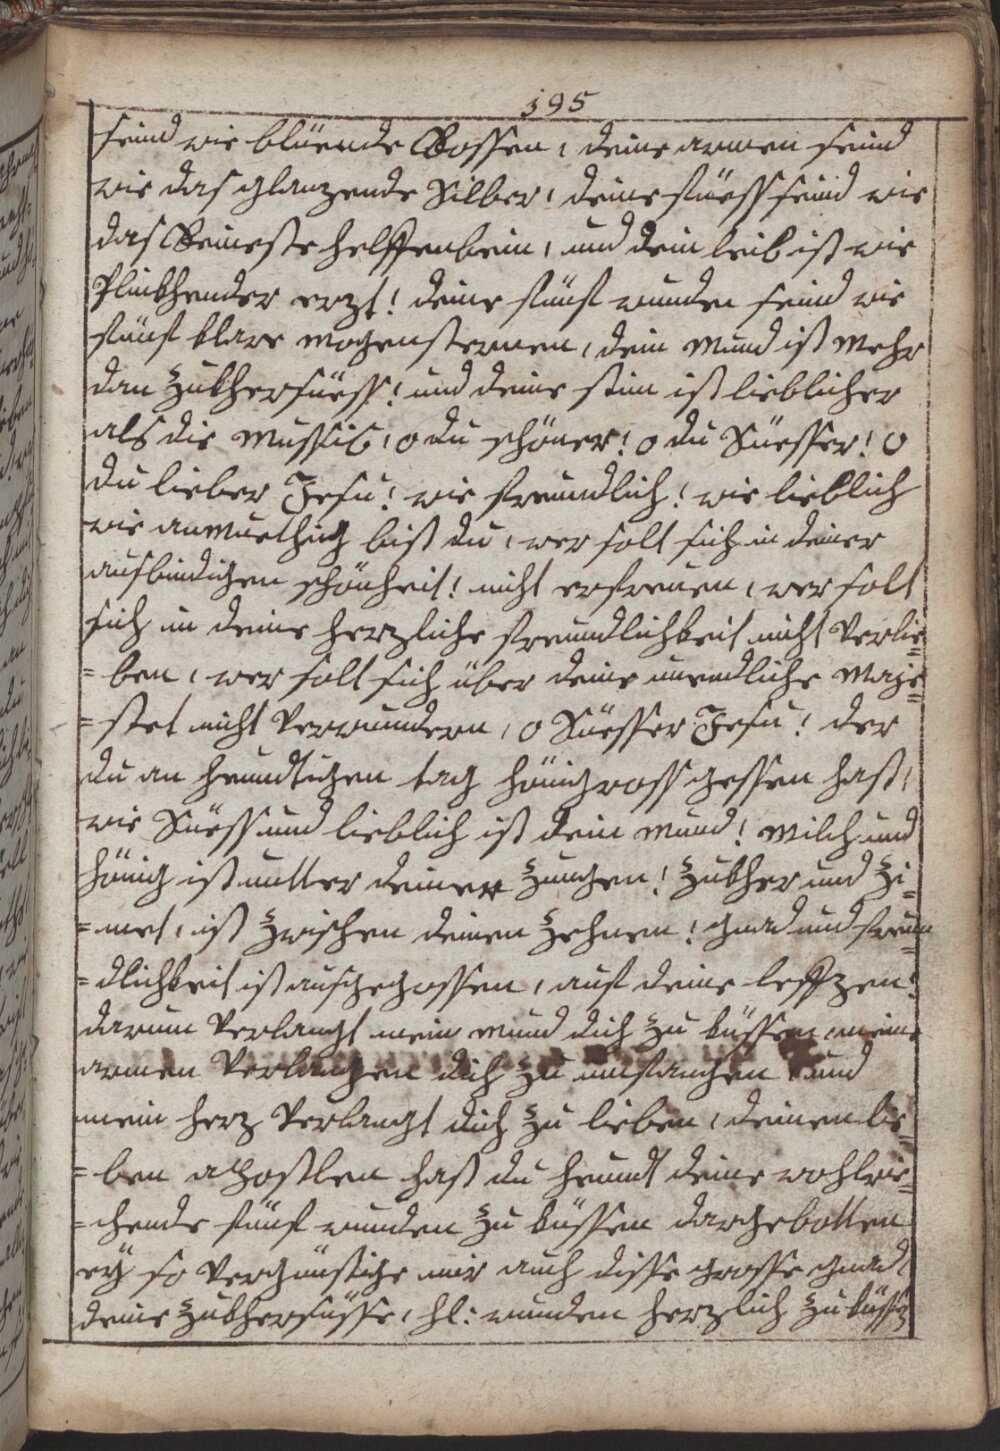 195
seind wie blüende Rossen, deine armen seind
wie das glanzende Silber, deine füess seind wie
das Reineste helffenbein, und dein leib ist wie
Plinkhender erzt! deine fünf wunden seind wie
fünf klare Morgensternen, dein Mund ist Mehr
dan Zukhersüess! und deine stim ist lieblicher
als die Mussik, o du schöner! o du Süesser! o
du lieber Jesu! wie freundlich! wie lieblich
wie anmuethig bist du, wer solt sich in deiner
ausbindigen schönheit! nicht erfreuen, wer solt
sich in deine herzliche freundlichkeit nicht Verlie=
=ben, wer solt sich über deine unendliche Maje=
=stet nicht Verwundern, o Süesser Jesu! der
du an heundtigen tag hönigross gessen hast,
wie Süess und lieblich ist dein Mund! Milch und
hönig ist untter deiner Zungen! Zukher und Zi=
=met, ist Zwischen deinen Zehnen! gnad und freun=
=dlichkeit ist ausgegossen, auf deine leffzen!
darum Verlangt mein mund dich Zu küssen meine
armen Verlangen dich Zu umfangen, und
mein herz Verlangt dich Zu lieben, deinen lie=
=ben apostlen hast du heundt deine wohlrie=
=chende fünf wunden Zu küssen dargebotten
eÿ so Vergünstige mir auch disse grosse gnad
deine Zukhersüsse, hl: wunden herzlich Zu küssen